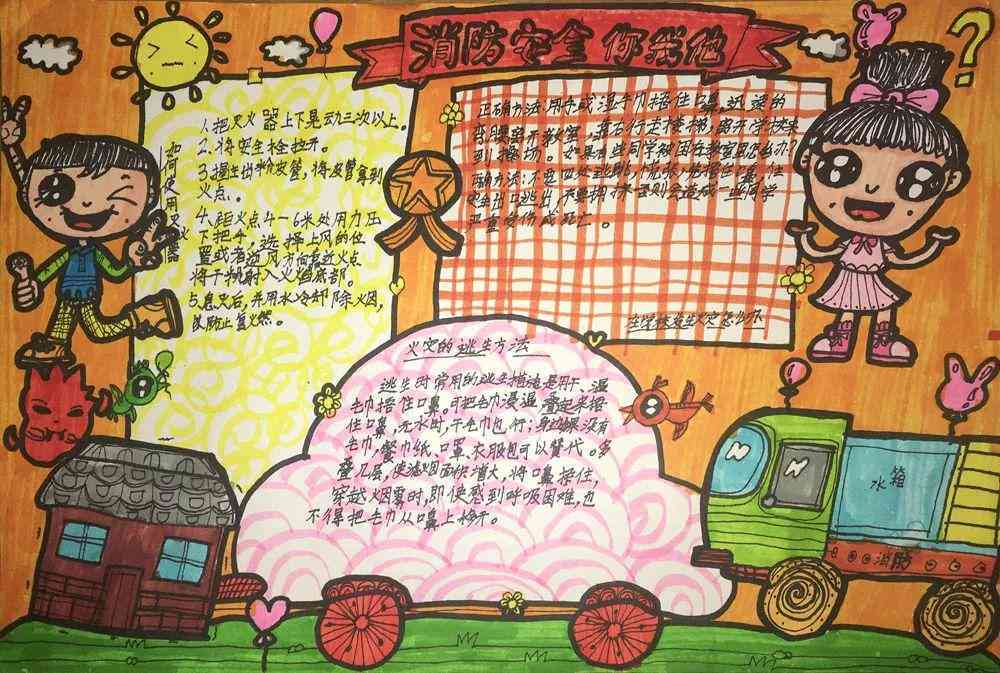 消防安全 你我他
如何使用灭火器
1.把灭火器上下晃动三次以上。
2.将安全栓拉开。
3.握住出粉皮管,将皮管拿到
火点。
4.距火点4-6米处用力压
下把手,选择上风的位
置或者逆风方向靠近火点
将干粉射入火焰底部。
5.息灭后,并用水冷却除火烟,
以防止复火燃。
正确方法:用手或湿手巾捂住口鼻,
弯腰离开教室,靠右行走楼梯,离开学校来
到操场。如果有些同学被困在教室里怎么办?
正确方法:不要四处逃跑,
安全出口逃出,不要拥挤否则会造成一些同学
严重受伤或死亡。
在学校发生火灾怎么办
火灾的逃生方法
逃生时常用的逃生措施是用湿
毛巾捂住口鼻。可把毛巾浸湿叠起来捂
住口鼻,无水时,干毛巾也行;身边如没有
毛巾,餐巾纸、口罩、衣服也可以替代。多
叠几层,使滤烟面积增大,将口鼻捂住,
穿越烟雾时,即使感到呼吸困难,也
不得把毛巾从口鼻上移开。
水箱
消防